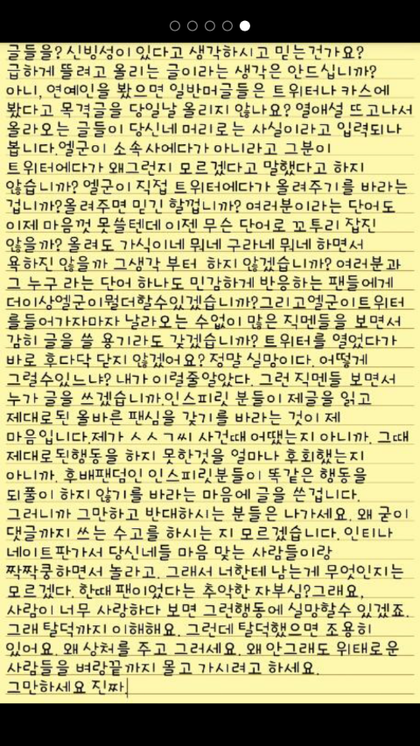 글들을? 신빙성이 있다고 생각하시고 믿는건가요?
급하게 뜰려고 올리는 글이라는 생각은 안드십니까?
아니, 연예인을 봤으면 일반머글들은 트위터나 카스에
봤다고 목격글을 당일날 올리지 않나요? 열애설 뜨고나서
올라오는 글들이 당신네 머리로는 사실이라고 입력되나
봅니다.엘군이 소속사에다가 아니라고 그분이
트위터에다가 왜그런지 모르겠다고 말했다고 하지
않습니까? 엘군이 직접 트위터에다가 올려주기를 바라는
겁니까?올려주면 믿긴 할껍니까? 여러분이라는 단어도
이제 마음껏 못쓸텐데 이젠 무슨 단어로 꼬투리 잡진
않을까? 올려도 가식이네 뭐네 구라네 뭐네 하면서
욕하진 않을까 그생각 부터 하지 않겠습니까? 여러분과
그 누구 라는 단어 하나도 민감하게 반응하는 팬들에게
더이상엘군이뭘더할수있겠습니까?그리고엘군이트위터
를들어가자마자 날라오는 수없이 많은 직멘들을 보면서
감히 글을 쓸 용기라도 갖겠습니까? 트위터를 열었다가
바로 후다닥 닫지 않겠어요? 정말 실망이다. 어떻게
그럴수있느냐? 내가 이럴줄알았다. 그런 직멘들 보면서
누가 글을 쓰겠습니까.인스피릿 분들이 제글을 읽고
제대로된 올바른 팬심을 갖기를 바라는 것이 제
마음입니다.제가 ㅅㅅㄱ씨 사건때 어땠는지 아니까. 그때
제대로된행동을 하지 못한것을 얼마나 후회했는지
아니까. 후배팬덤인 인스피릿분들이 똑같은 행동을
되풀이 하지 않기를 바라는 마음에 글을 쓴겁니다.
그러니까 그만하고 반대하시는 분들은 나가세요. 왜 굳이
댓글까지 쓰는 수고를 하시는 지 모르겠습니다. 인티나
네이트판가서 당신네들 마음 맞는 사람들이랑
짝짝쿵하면서 놀라고. 그래서 너한테 남는게 무엇인지는
모르겠다. 한때 팬이었다는 추악한 자부심?그래요,
사람이 너무 사랑하다 보면 그런행동에 실망할수 있겠죠.
그래 탈덕까지 이해해요. 그런데 탈덕했으면 조용히
있어요. 왜 상처를 주고 그러세요. 왜 안그래도 위태로운
사람들을 벼랑끝까지 몰고 가시려고 하세요.
그만하세요 진짜